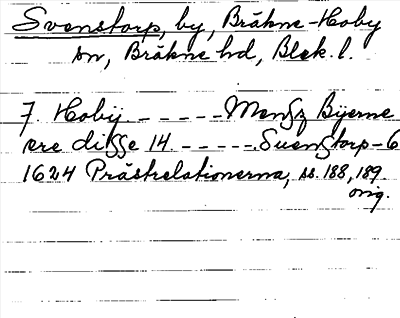 Svenstorp, by, Bräkne-Hoby
sn, Bräkne hd, Blek. l.
7. Hobÿ - - - - - - Mongz Bÿerne
ere disse 14 - - - - - Suenstorp - 6
1624 Prästrelationerna, ss. 188, 189.
orig.